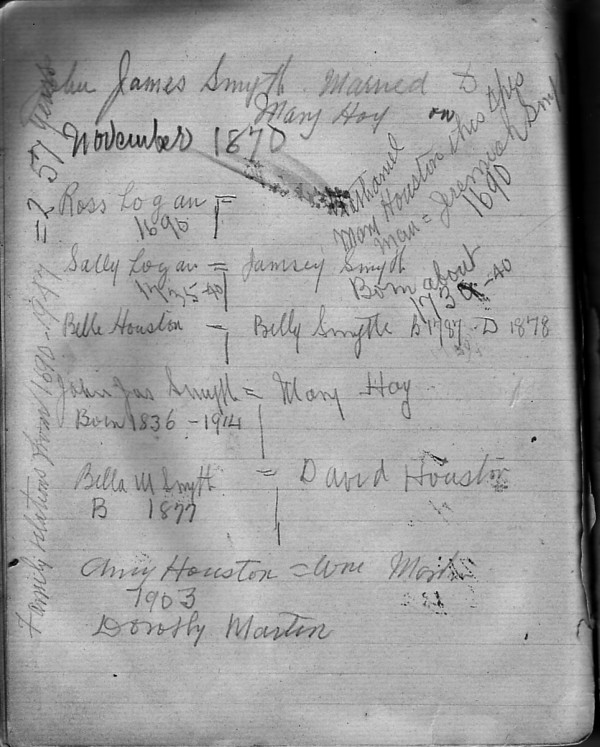 John James Smyth Married D
Mary Hoy on
November 1870
Nathaniel
Mary Houston this
man = Jeremiah Smyt
1690
Ross Logan =
1690
Sally Logan = Jamsey Smyth
1735-40
Born about
1735-40
Belle Houston = Belly Smyth B 1787 - D 1878
John Jas Smyth = Mary Hoy
Born 1836 - 1914
Bella M Smyth = David Houston
B 1877
Amy Houston = Wm Martin
1903
Dorothy Martin
Family relations from 1690-1947 = 257 years